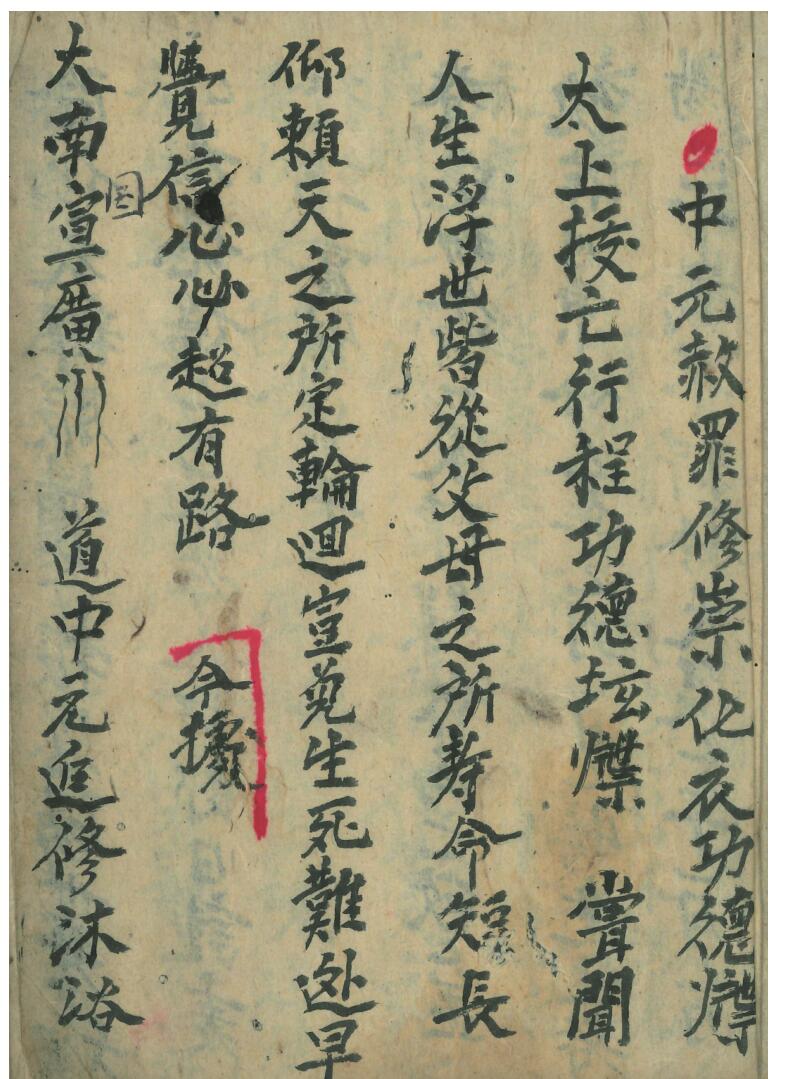 中元赦罪修崇化衣功德牒
太上接亡行程功德坛牒 嘗聞
人生浮世皆從父母之所寿命短長
仰賴天之所定輪迴豈免生死難迯早
覺信心必超有路 今據
大南国宣廣川 道中元追修沐浴